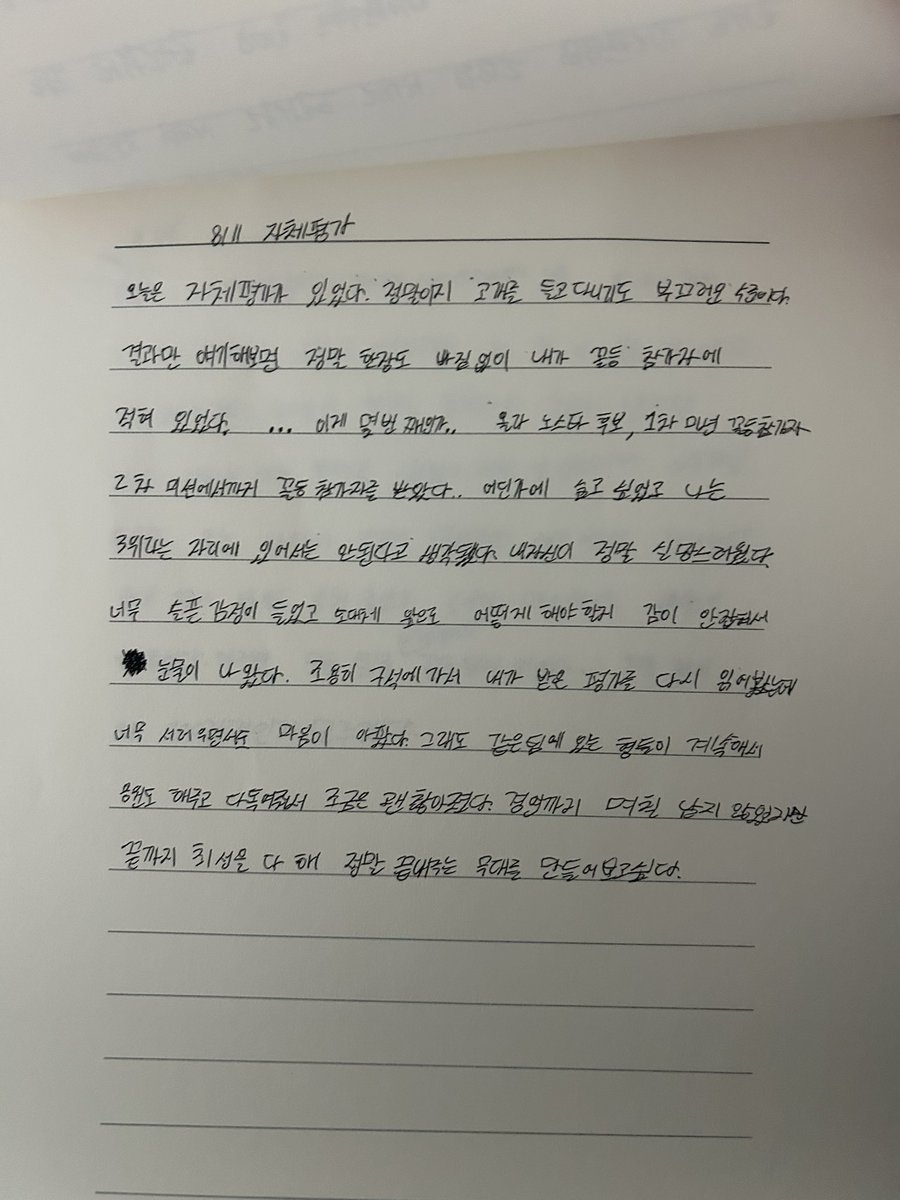 8/11 자체평가
오늘은 자체평가가 있었다. 정말이지 고개를 들고 다니기도 부끄러운 수준이다.
결과만 얘기해보면 정말 한장도 빠짐없이 내가 꼴등 참가자에
적혀 있었다. ... 이게 몇번 째인가.. 올라 노스타 후보, 1차 미션 꼴등참가자
2차 미션에서까지 꼴등 참가자를 받았다.. 어딘가에 숨고 싶었고 나는
3위라는 자리에 있어서는 안된다고 생각됐다. 내자신이 정말 실망스러웠다
너무 슬픈 감정이 들었고 도대체 앞으로 어떻게 해야할지 감이 안잡혀서
눈물이 나왔다. 조용히 구석에가서 내가 받은 평가를 다시 읽어봤는데
너무 서러우면서도 마음이 아팠다. 그래도 같은팀에 있는 형들이 계속해서
응원도 해주고 다독여줘서 조금은 괜찮아졌다. 경연까지 며칠 남지 않았지만
끝까지 최선을 다 해 정말 끝내주는 무대를 만들어보고싶다.